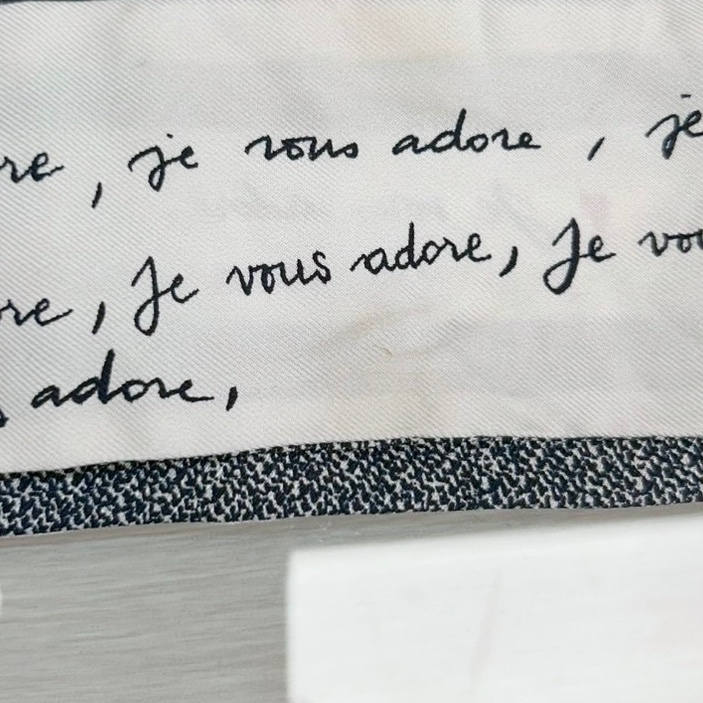 re, je vous adore, je
re, Je vous adore, Je vou
s adore,